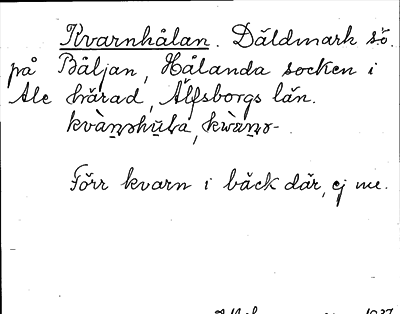 Kvarnhålan. Däldmark sö.
på Bäljan, Hålanda socken i
Ale härad, Älfsborgs län.
Förr kvarn i bäck där, ej nu.